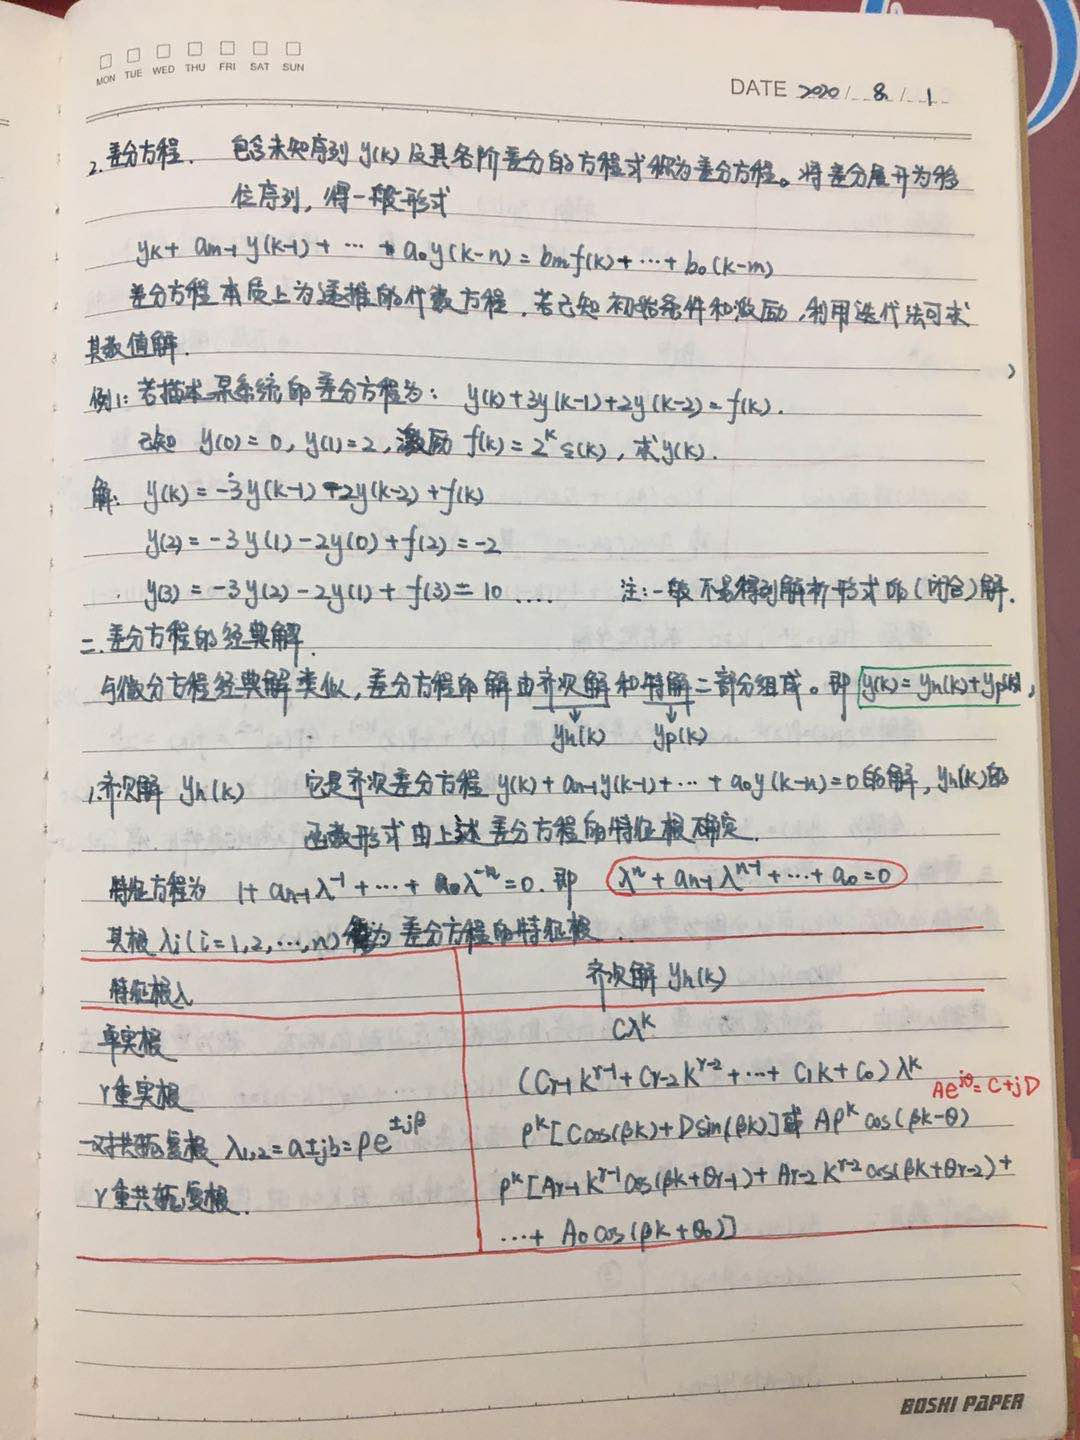 MON TUE WED THU FRI SAT SUN
DATE 2020 / 8 / 1
2.差分方程. 包含未知序列 y(k) 及其各阶差分的方程式称为差分方程。将差分展开为移
位序列, 得一般形式
yk + am-1 y(k-1) + … + a₀y(k-n) = bmf(k) + … + b₀(k-m)
差分方程本质上为递推的代数方程, 若已知初始条件和激励, 利用迭代法可求
其数值解.
例1: 若描述某系统的差分方程为: y(k)+3y(k-1)+2y(k-2)=f(k).
已知 y(0)=0, y(1)=2, 激励 f(k)=2ᵏε(k), 求y(k).
解: y(k) = -3y(k-1) -2y(k-2) + f(k)
y(2) = -3y(1) -2y(0) + f(2) = -2
y(3) = -3y(2) -2y(1) + f(3) = 10 .... 注:一般不易得到解析形式的(闭合)解.
二.差分方程的经典解.
与微分方程经典解类似, 差分方程的解由齐次解和特解二部分组成。即 y(k)=yh(k)+yp(k),
yh(k) yp(k)
1.齐次解 yh(k) 它是齐次差分方程 y(k) + an-1y(k-1) + … + a₀y(k-n) = 0 的解, yh(k)的
函数形式由上述差分方程的特征根确定.
特征方程为 1 + an-1 λ⁻¹ + … + a₀λ⁻ⁿ = 0. 即 λⁿ + an-1 λⁿ⁻¹ + … + a₀ = 0
其根 λi (i=1,2,…,n) 称为差分方程的特征根.
特征根λ 齐次解 yh(k)
单实根 Cλᵏ
r重实根 (Cr-1 kʳ⁻¹ + Cr-2 kʳ⁻² + … + C₁k + C₀) λᵏ
Ae^jθ = C+jD
一对共轭复根 λ1,2 = a±jb = ρe^±jβ ρᵏ[Ccos(βk) + Dsin(βk)] 或 Aρᵏcos(βk-θ)
r重共轭复根. ρᵏ[Ar-1 kʳ⁻¹ cos(βk+θr-1) + Ar-2 kʳ⁻² cos(βk+θr-2) +
… + A₀ cos(βk+θ₀)]
BOSHI PAPER